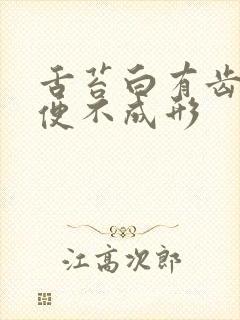 舌苔白有齿
便不成形
江高次郎